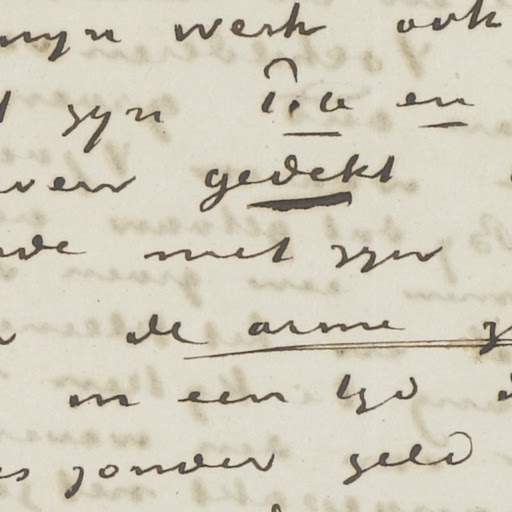 mijn werk ook
zijn Tic en
even gedekt
met zijn
de arme
in een tijd
zonder geld